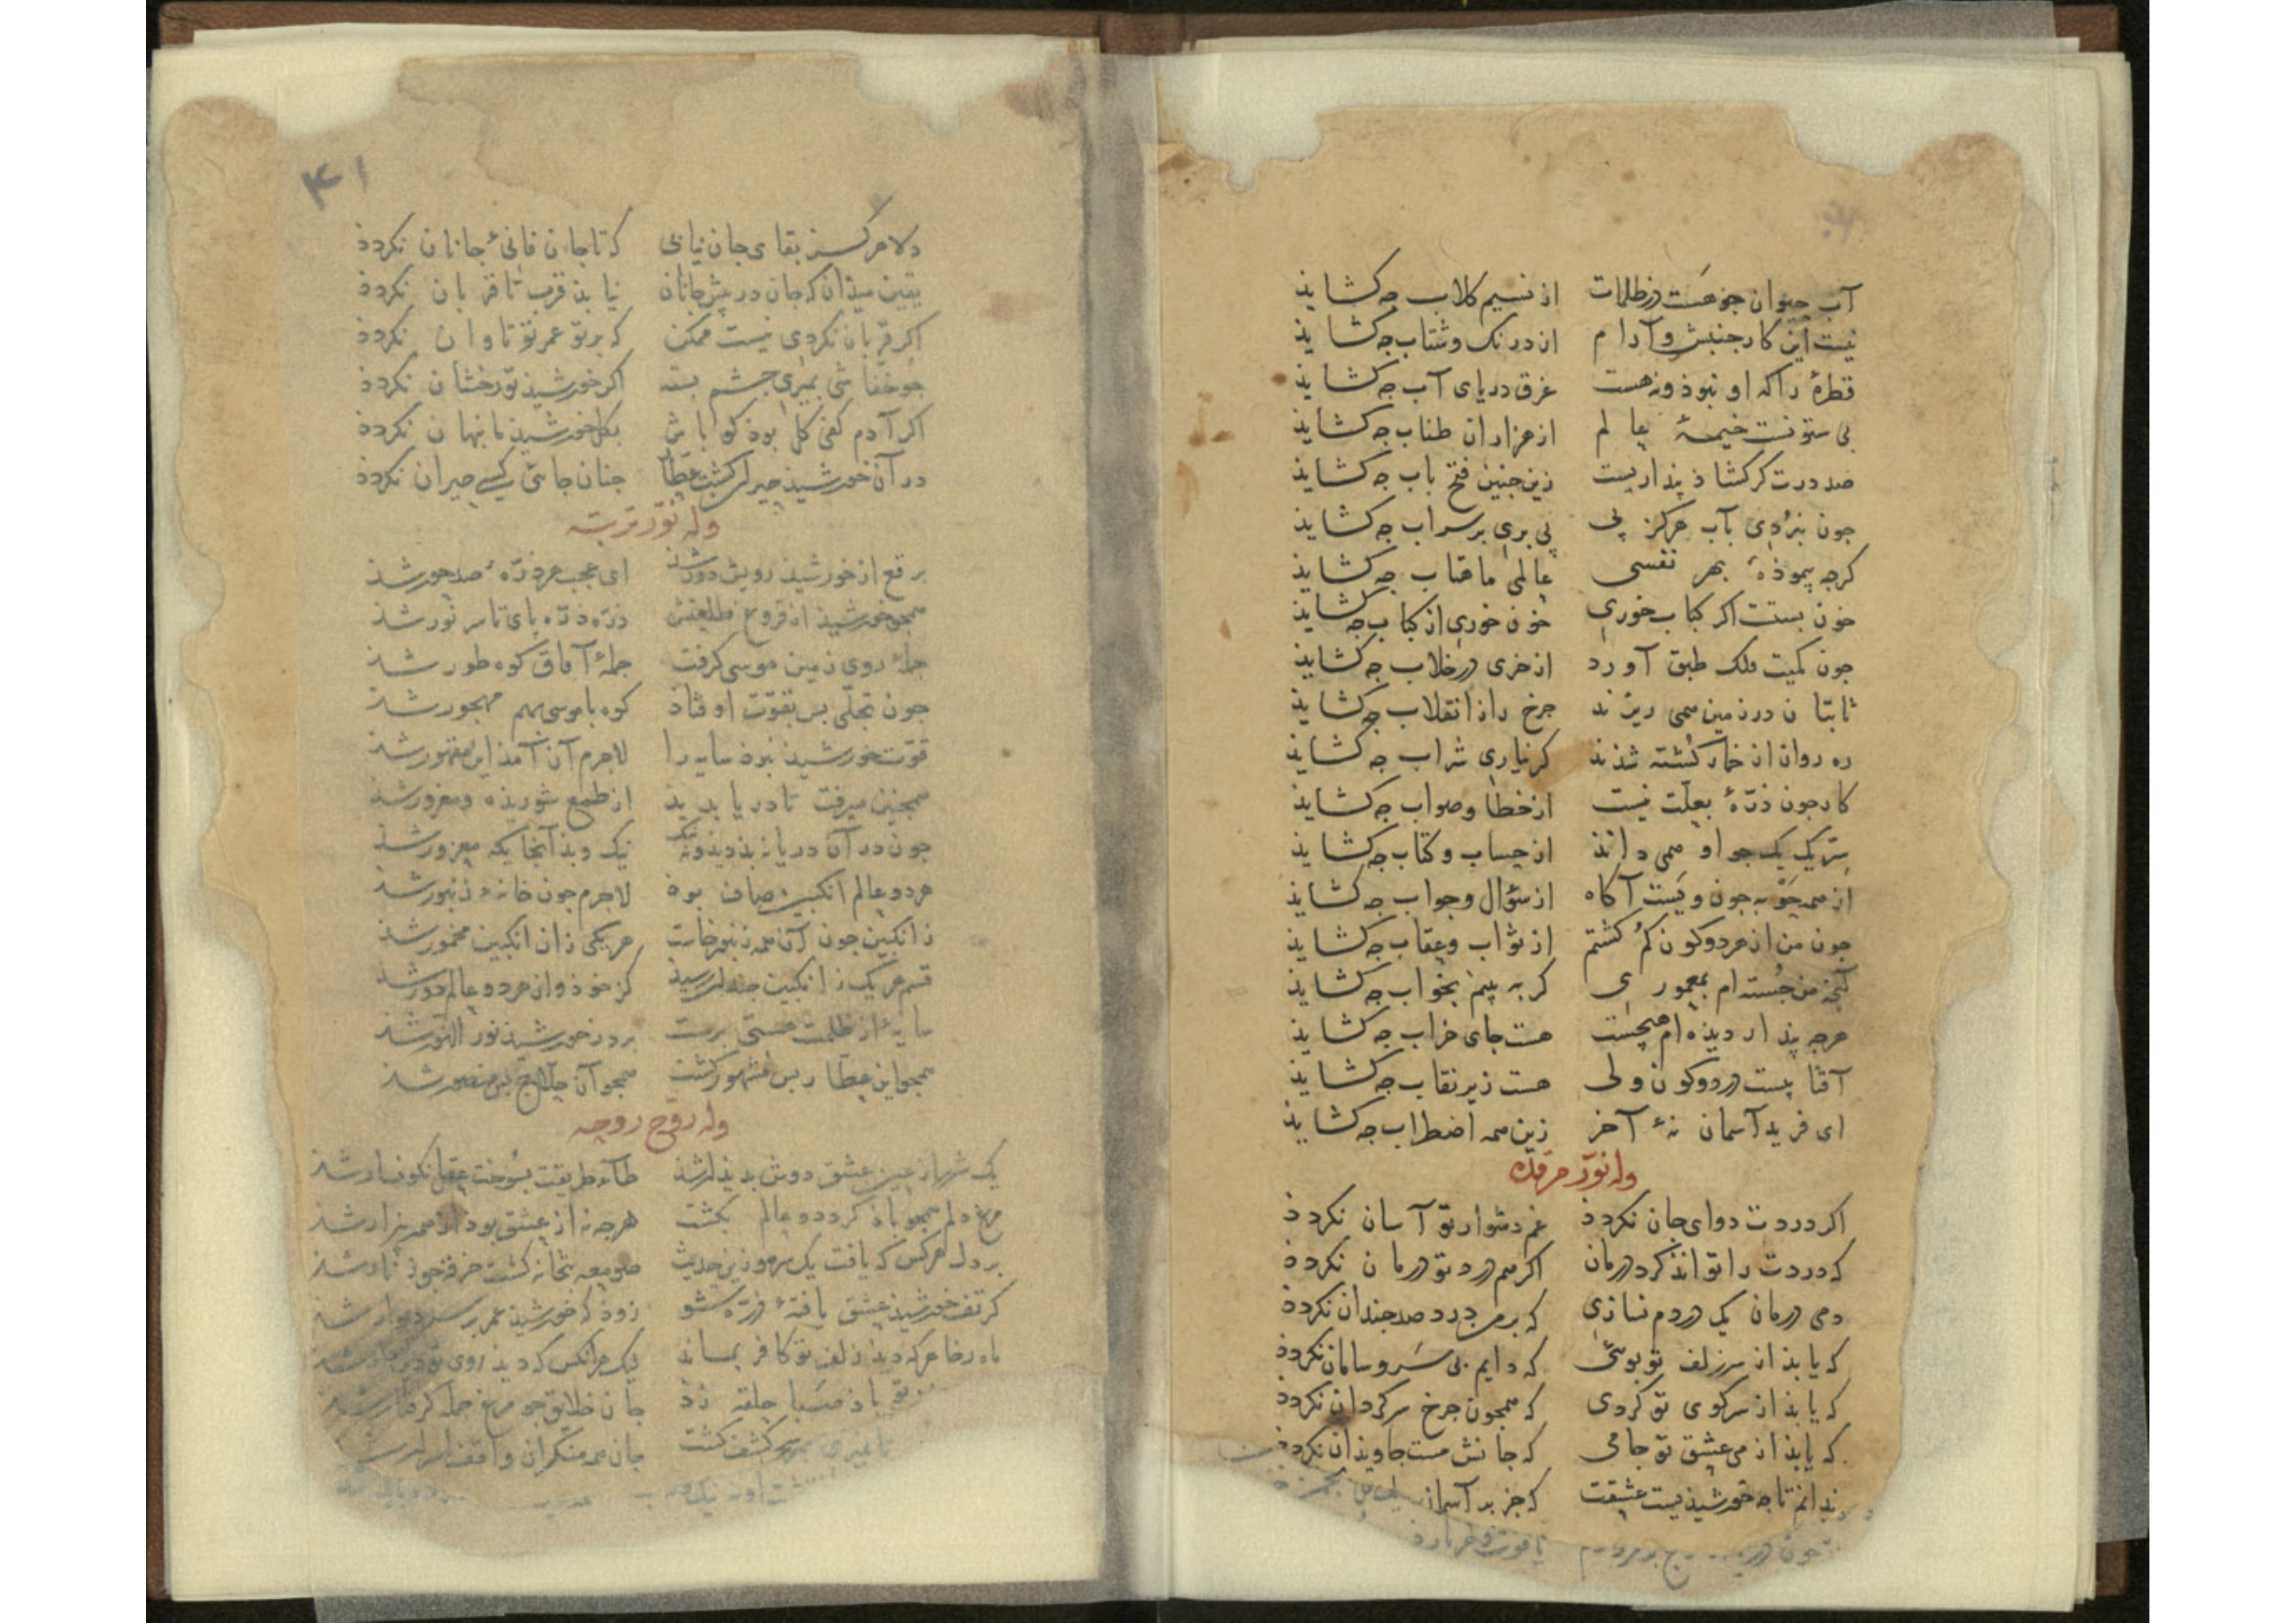 آب حیوان جو هست در ظلمات از نسیم کلاب جه کشاید
نیست این کار جنبش و آرام از درنک و شتاب جه کشاید
قطرهٔ را که او نبوذ و نه هست غرق دریای آب جه کشاید
بی ستونست خیمهٔ عالم از هزاران طناب جه کشاید
صد درت کر کشاذ بنداریست زین جنین فتح باب جه کشاید
جون نبردی بآب هرکز پی پی بری بر سراب جه کشاید
کرجه پیموذهٔ بهر نفسی عالمی ماهتاب جه کشاید
خون بستت اکر کباب خوری خون خوری از کباب جه کشاید
جون کمیت فلک طبق آورد از خری در خلاب جه کشاید
ثابتان در زمین همی ریزند جرخ را از انقلاب جه کشاید
ره روان از خمار کشته شدند کر نیاری شراب جه کشاید
کار جون ذرهٔ بعلت نیست از خطا و صواب جه کشاید
سر یک یک جو او همی داند از حساب و کتاب جه کشاید
از همه جو به جون ویست آکاه از سؤال و جواب جه کشاید
جون من از هر دو کون کم کشتم از ثواب و عقاب جه کشاید
آنجه من جسته ام بمعموری کر به بینم بخواب جه کشاید
هرجه بیذار دیذه ام هیجست هست جای خراب جه کشاید
آفتابیست در دو کون ولی هست زیر نقاب جه کشاید
ای فرید آسمان نهٔ آخر زین همه اضطراب جه کشاید
وله نور مرقده
اکر دردت دوای جان نکردذ غم دشوار تو آسان نکردذ
که دردت را تواند کرد درمان اکر هم درد تو درمان نکردذ
دمی درمان یک دردم نسازی که بر من درد صد جندان نکردذ
که یابذ از سر زلف تو بویی که دایم بی سر و سامان نکردذ
که یابذ از سر کوی تو کردی که همجون جرخ سرکردان نکردذ
که یابذ از می عشق تو جامی که جانش مست جاویذان نکردذ
ندانم تا جه خورشیذیست عشقت که جز بر آسمان
۴۱
دلا هرکز بقای جان نیابی که تا جان فانیٔ جانان نکردذ
یقین میذان که جان در پیش جانان نیابذ قرب تا قربان نکردذ
اکر قربان نکردی نیست ممکن که بر تو عمر تو تاوان نکردذ
جو خفاشی بمیری جشم بسته اکر خورشیذ تو رخشان نکردذ
اکر آدم کفی کل بوذ کو باش بکل خورشیذ ما پنهان نکردذ
در آن خورشیذ حیران کشت عطار جنان جائی کسی حیران نکردذ
وله نور تربته
برقع از خورشیذ رویش دور شذ ای عجب هر ذرهٔ صد حور شذ
همجو خورشیذ از فروغ طلعتش ذره ذره پای تا سر نور شذ
جملهٔ روی زمین موسی کرفت جملهٔ آفاق کوه طور شذ
جون تجلی بس بقوت اوفتاذ کوه با موسی بهم مهجور شذ
قوت خورشیذ نبوذ سایه را لاجرم آن آمذ این مقهور شذ
همجنین میرفت تا دریا بدید از طمع شوریذه و مغرور شذ
جون در آن دریا نه بذ دید و نه نیک نیک و بذ آنجایکه معزور شذ
هر دو عالم انکبین صاف بوذ لاجرم جون خانهٔ زنبور شذ
زانکبین جون آن همه زنبور خاست هر یکی زان انکبین مخمور شذ
قسم هر یک زانکبین جندان رسید کز خوذ و از هر دو عالم دور شذ
سایهٔ از ظلمت هستی برست بر در خورشیذ نور النور شذ
همجو این عطار بس مشهور کشت همجو آن حلاج بس منصور شذ
وله روح روحه
یک شرر از عین عشق دوش بدیذار شذ طای طریقت بسوخت عقل نکونسار شذ
مرغ دلم همجو باذ کرد دو عالم بکشت هرجه نه از عشق بوذ از همه بیزار شذ
بر دل هرکس که یافت یک سر مو زین حدیث صومعه بتخانه کشت خرقه جو زنار شذ
کر تف خورشیذ عشق یافتهٔ ذره شو زوذ که خورشیذ عمر بر سر دیوار شذ
ماه رخا هرکه دید زلف تو کافر بماند لیک هرانکس که دید روی تو
باذ صبا حلقه زد جان خلایق جو مرغ جمله کرفتار شذ
کشف کشت جان همه منکران واقف اسرار شذ